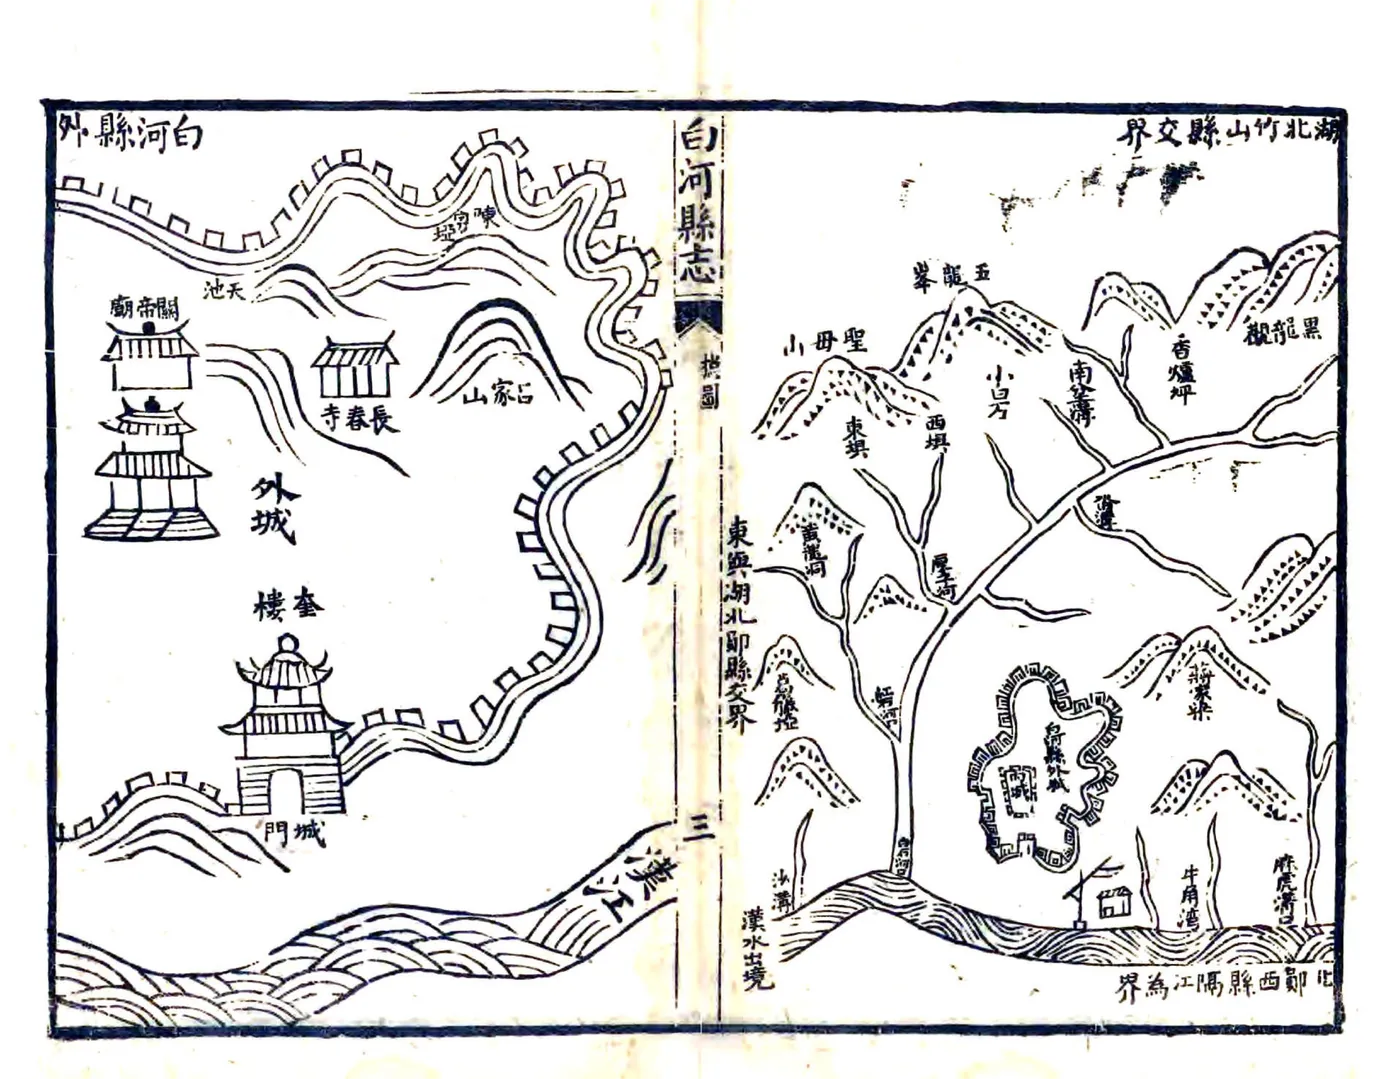 湖北竹山縣交界
黑龍觀
香爐坪
五龍峯
南岔溝
小白石
聖母山
西垻
東垻
厚子河
黃龍洞
蔣家梁
白河縣外城
內城
白石河口
麻虎溝口
牛角湾
沙溝
東與湖北鄖縣交界
漢水出境
北鄖西縣隔江為界
白河縣志
三
白河縣外
天池
關帝廟
長春寺
呂家山
外城
奎樓
城門
漢江